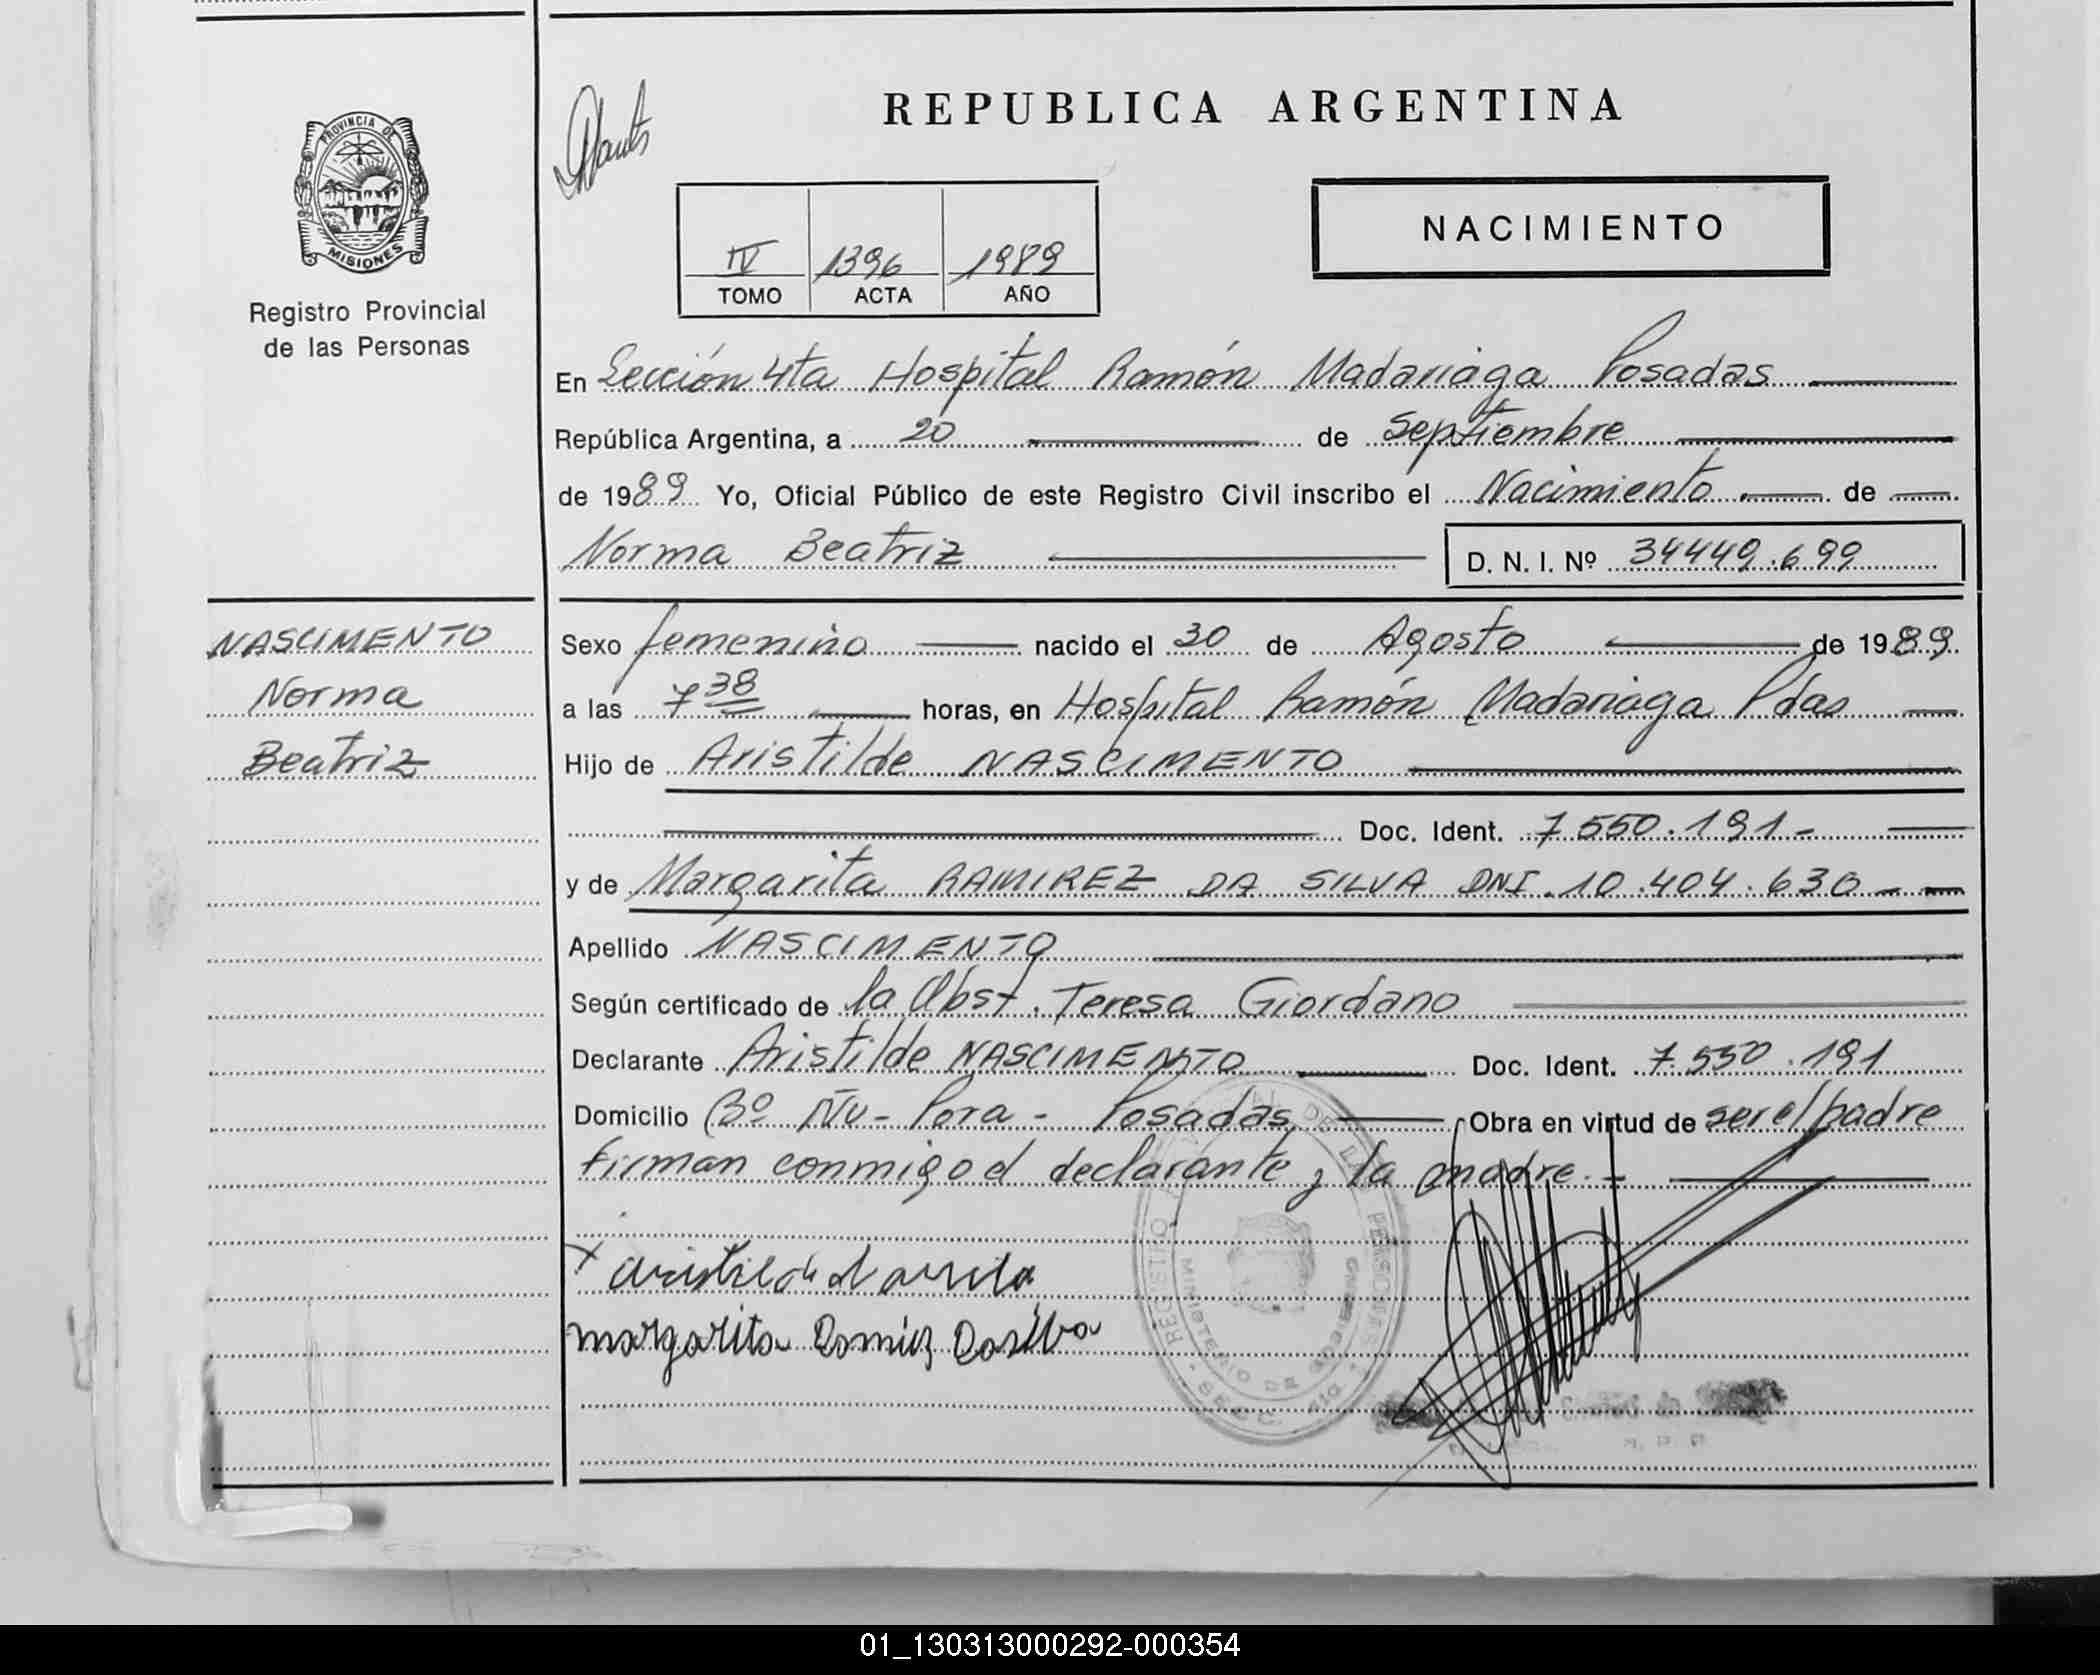 REPUBLICA ARGENTINA
PROVINCIA DE
MISIONES
Registro Provincial
de las Personas
NACIMIENTO
IV 1396 1989
TOMO ACTA AÑO
En Sección 4ta Hospital Ramón Madariaga Posadas
República Argentina, a 20 de Septiembre
de 1989 Yo, Oficial Público de este Registro Civil inscribo el Nacimiento de
Norma Beatriz D. N. I. Nº 34449.699
NASCIMENTO
Norma
Beatriz
Sexo femenino nacido el 30 de Agosto de 1989
a las 7 38 horas, en Hospital Ramón Madariaga Pdas
Hijo de Aristilde NASCIMENTO
Doc. Ident. 7550.191-
y de Margarita RAMIREZ DA SILVA DNI. 10.404.630-
Apellido NASCIMENTO
Según certificado de la Obst. Teresa Giordano
Declarante Aristilde NASCIMENTO Doc. Ident. 7.550.191
Domicilio Bº Ñu-Pora- Posadas Obra en virtud de ser el padre
firman conmigo el declarante y la madre.-
margarita
REGISTRO PROVINCIAL DE LAS PERSONAS
MINISTERIO DE GOBIERNO
SECC. 4ta
01_130313000292-000354